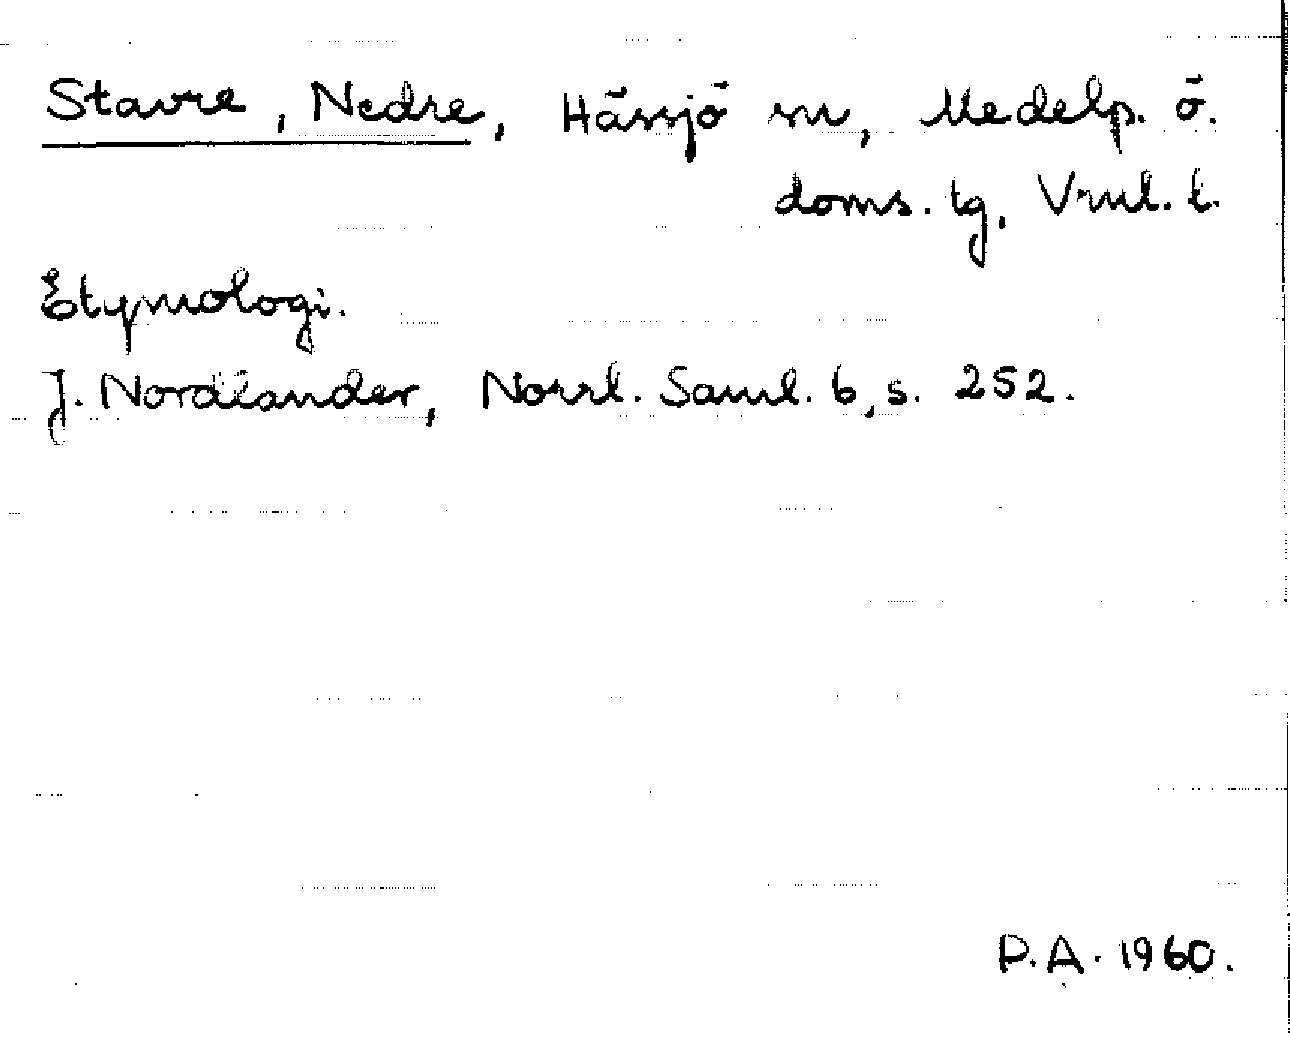 Stavre, Nedre, Hässjö sn, Medelp. ö.
doms. tg, Vnrl. l.
Etymologi.
J. Nordlander, Norrl. Saml. 6, s. 252.
P.A. 1960.